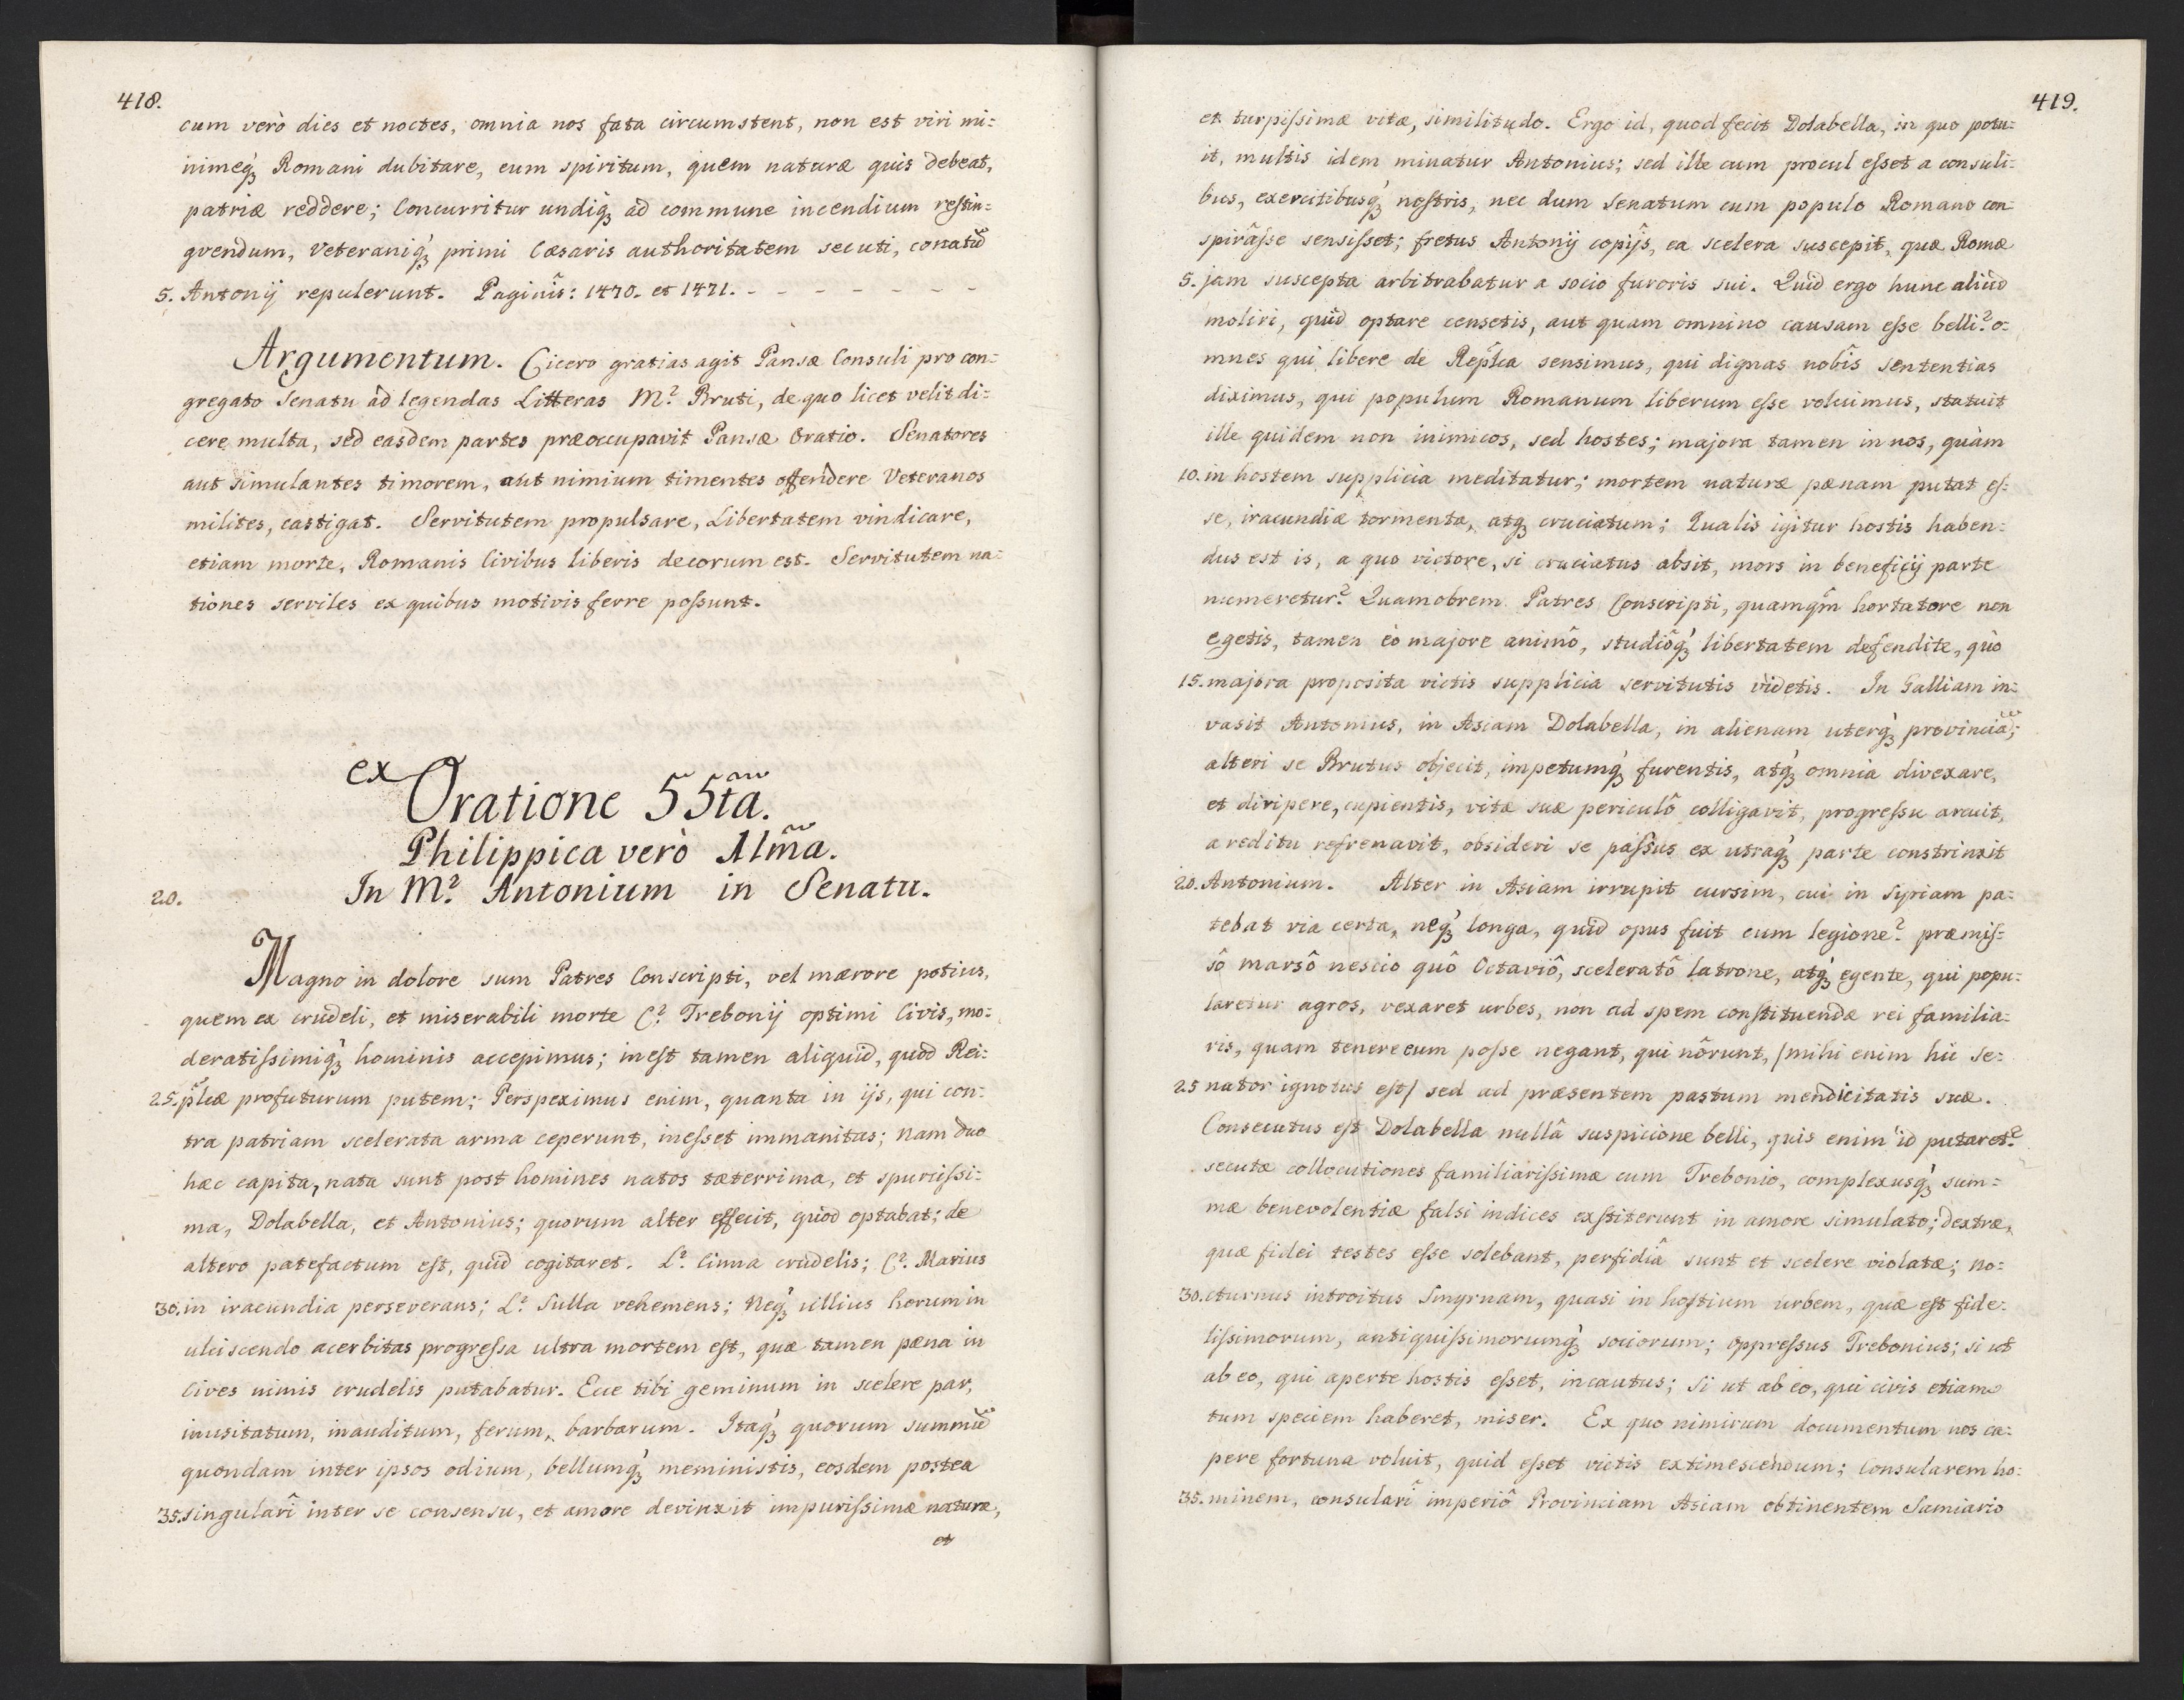 418.
cum verò dies et noctes, omnia nos fata circumstent, non est viri mi:
nimeq́ꝫ Romani dubitare, eum spiritum, quem naturæ quis debeat,
patriæ reddere; Concurritur undiq́ꝫ ad commune incendium restin:
gvendum, Veteraniq́ꝫ primi Cæsaris authoritatem secuti, conatũ
5. Antonij repulerunt. Paginîs: 1470. et 1471. - - - - - - -
Argumentum. Cicero gratias agit Pansæ Consuli pro con:
gregato Senatu ad legendas Litteras M? Bruti, de quo licet velit di:
cere multa, sed easdem partes præoccupavit Pansæ Oratio. Senatores
aut simulantes timorem, aut nimium timentes offendere Veteranos
milites, castigat. Servitutem propulsare, Libertatem vindicare,
etiam morte, Romanis Civibus liberis decorum est. Servitutem na:
tiones serviles ex quibus motivis ferre poſsunt.
ex
Oratione 55tã.
Philippica verò 11m̃a.
20. In M? Antonium in Senatu.
Magno in dolore sum Patres Conscripti, vel mærore potius,
quem ex crudeli, et miserabili morte C? Trebonij optimi Civis, mo:
deratiſsimiq́ꝫ hominis accepimus; inest tamen aliquid, quod Rei:
25. p̃læ profuturum putem; Perspeximus enim, quanta in ijs, qui con:
tra patriam scelerata arma ceperunt, ineſset immanitas; Nam duo
hæc capita, nata sunt post homines natos tæterrima, et spurciſsi:
ma, Dolabella, et Antonius; quorum alter effecit, quod optabat; de
altero patefactum est, quid cogitaret. L? Cinna crudelis; C?. Marius
30. in iracundia perseverans; L? Sulla vehemens; Neq́ꝫ ullius horum in
ulciscendo acerbitas progreſsa ultra mortem est, quæ tamen pæna in
Cives nimis crudelis putabatur. Ecce tibi geminum in scelere par,
inusitatum, inauditum, ferum, barbarum. Itaq́ꝫ quorum summũ
quondam inter ipsos odium, bellumq́ꝫ meministis, eosdem postea
35. singularî inter se consensu, et amore devinxit impuriſsimæ naturæ,
et
419.
et turpiſsimæ vitæ, similitudo. Ergo id, quod fecit Dolabella, in quo potu:
it, multis idem minatur Antonius; sed ille cum procul eſset a consuli:
bus, exercitibusq́ꝫ nostris, nec dum Senatum cum populo Romano con:
spirâſse sensiſset; fretus Antonij copijs, ea scelera suscepit, quæ Romæ
5. jam suscepta arbitrabatur a socio furoris sui. Quid ergo hunc aliud
moliri, quid optare censetis, aut quam omnino causam eſse belli? o:
mnes qui libere de Rep̃lca sensimus, qui dignas nobîs sententias
diximus, qui populum Romanum liberum eſse voluimus, statuit
ille quidem non inimicos, sed hostes; majora tamen in nos, quàm
10. in hostem supplicia meditatur; mortem naturæ pænam putat eſ:
se, iracundiæ tormenta, atq́ꝫ cruciatum; Qualis igitur hostis haben:
dus est is, a quo victore, si cruciatus absit, mors in beneficij parte
numeretur? Quamobrem Patres Conscripti, quamqm̃ hortatore non
egetis, tamen eò majore animô, studiôq́ꝫ libertatem defendite, quò
15. majora proposita victis supplicia servitutis videtis. In Galliam in:
vasit Antonius, in Asiam Dolabella, in alienam uterq́ꝫ provinciã;
alteri se Brutus objecit, impetumq́ꝫ furentis, atq́ꝫ omnia divexare,
et diripere, cupientis, vitæ suæ periculô colligavit, progreſsu arcuit,
a reditu refrenavit, obsideri se paſsus ex utraq́ꝫ parte constrinxit
20. Antonium. Alter in Asiam irrupit cursim, cui in Syriam pa:
tebat via certa, neq́ꝫ longa, quid opus fuit cum legione? præmiſ:
sô marsô nescio quô Octaviô, sceleratô latrone, atq́ꝫ egente, qui popu:
laretur agros, vexaret urbes, non ad spem constituendæ rei familia:
ris, quam tenere eum poſse negant, qui nôrunt, /mihi enim hic se:
25 nator ignotus est/ sed ad præsentem pastum mendicitatis suæ.
Consecutus est Dolabella nullâ suspicione belli, quis enim id putaret?
secutæ collocutiones familiariſsimæ cum Trebonio, complexusq́ꝫ sum:
mæ benevolentiæ falsi indices exstiterunt in amore simulato; dextræ,
quæ fidei testes eſse solebant, perfidiâ sunt et scelere violatæ; no:
30. cturnus introitus Smyrnam, quasi in hostium urbem, quæ est fide:
liſsimorum, antiquiſsimorumq́ꝫ sociorum; oppreſsus Trebonius; si ut
ab eo, qui aperte hostis eſset, incautus; si ut ab eo, qui civis etiam
tum speciem haberet, miser. Ex quo nimirum documentum nos ca:
pere fortuna voluit, quid eſset victis extimescendum; Consularem ho:
35. minem, consularî imperiô Provinciam Asiam obtinentem Samiario